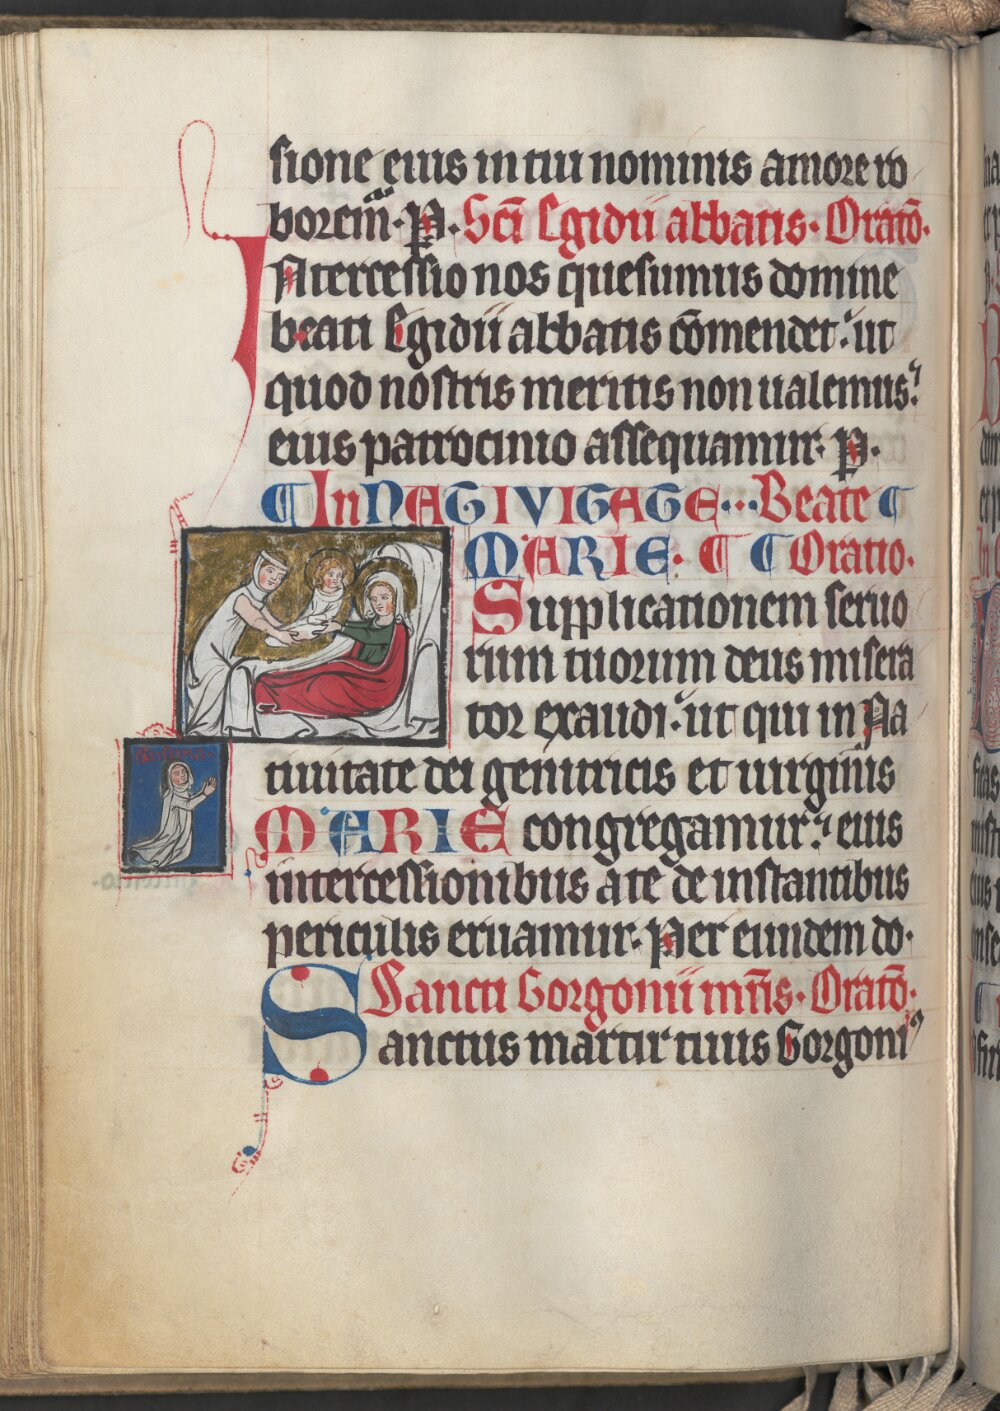 sione eius in tui nominis amore ro
borem̄. P. Sc̄i Egidii abbatis. Orat̄o.
Intercessio nos quesumus domine
beati Egidii abbatis cōmendet. ut
quod nostris meritis non ualemus.
eius patrocinio assequamur. P.
¶ In NATIVITATE... Beate ¶
MARIE. ¶ ¶ Oratio.
Supplicationem seruo
rum tuorum deus misera
tor exaudi. ut qui in Na
tiuitate dei genitricis et uirginis
MARIE congregamur. eius
intercessionibus a te de instantibus
periculis eruamur. Per eundem do.
Sancti Gorgonii mr̄is. Orat̄o.
Sanctus martir tuus Gorgoni⁹